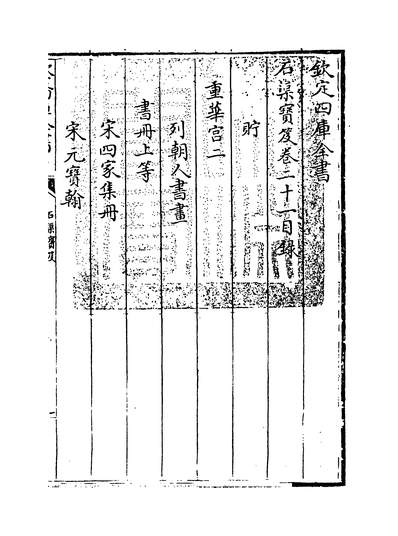 欽定四庫全書
石渠寶笈卷二十一目錄
貯
重華宫二
列朝人書畫
書冊上等
宋四家集冊
宋元寶翰